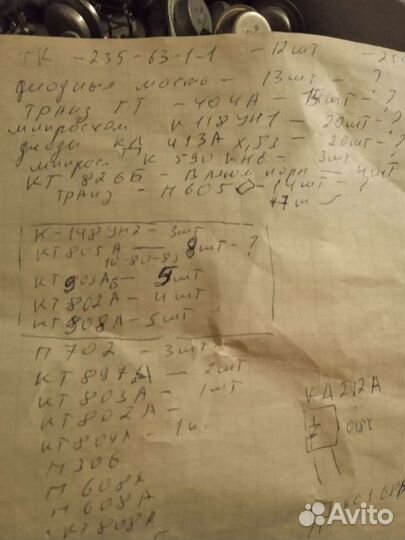 ТК - 235-63-1-1 - 12шт
диодные мосты - 13шт - ?
Транз ГТ - 404А - 15шт - ?
микросхем К 118УН1 - 20шт - ?
диоды КД 413А - 20шт - ?
микрос. К 590 КН6 - 3шт - ?
КТ 826Б - 4шт
Транз - П605 - 14шт - ?
К-148УН2 - 3шт
КТ 805А - 8шт - ?
10-80-83
КТ 903А - 5шт
КТ 802А - 4шт
КТ 908А - 5шт
П 702 - 3шт
КТ 897А - 2шт
КТ 803А - 1шт
КТ 802А -
КТ 809А - 1
П 306
П 608А
П 608А
КТ 808А
КД 212А
Avito